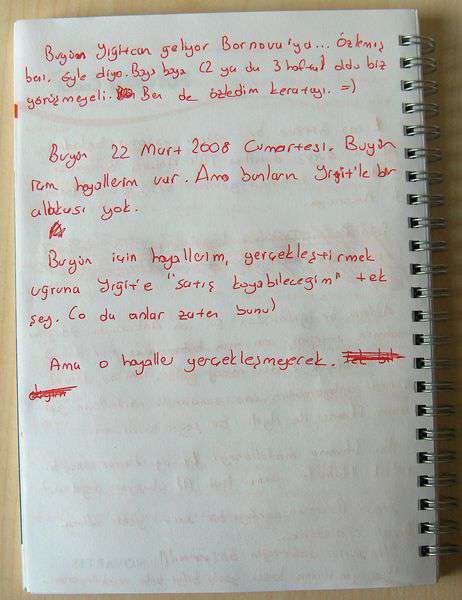 Bugün Yiğitcan geliyor Bornova'ya... Özlemiş
beni. öyle diyo. Baya baya (2 ya da 3 hafta) oldu biz
görüşmeyeli. Ben de özledim keratayı. =)
Bugün 22 Mart 2008 Cumartesi. Bugün
için hayallerim var. Ama bunların Yiğit'le bir
alakası yok.
Bugün için hayallerim, gerçekleştirmek
uğruna Yiğit'e "satış koyabileceğim" tek
şey. (o da anlar zaten bunu)
Ama o hayaller gerçekleşmeyecek.